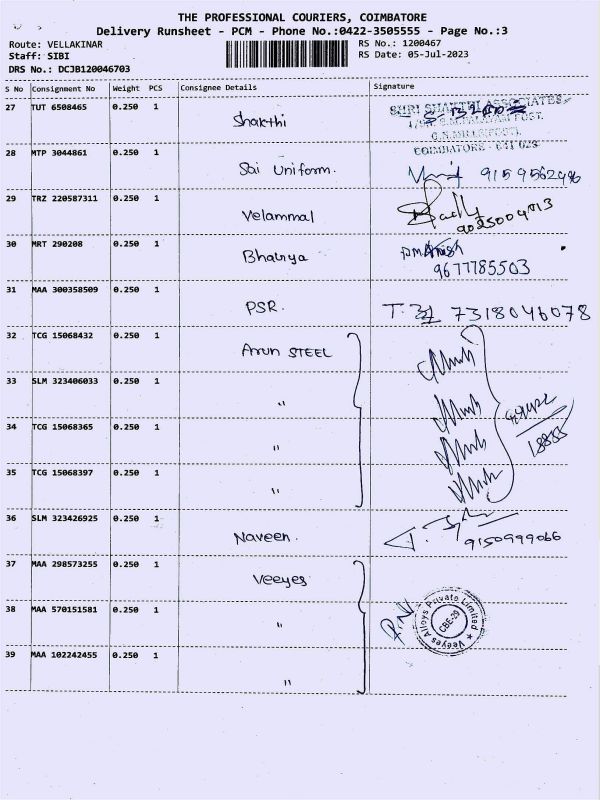 THE PROFESSIONAL COURIERS, COIMBATORE
Delivery Runsheet - PCM - Phone No.:0422-3505555 - Page No.:3
Route: VELLAKINAR RS No.: 1200467
Staff: SIBI RS Date: 05-Jul-2023
DRS No.: DCJB120046703
S No Consignment No Weight PCS Consignee Details Signature
27 TUT 6508465 0.250 1 Shakthi SHRI SHAKTHI ASSOCIATES
COIMBATORE - 641 029
28 MTP 3044861 0.250 1 Sai Uniform. 9159562496
29 TRZ 220587311 0.250 1 Velammal
30 MRT 290208 0.250 1 Bhairya
9677785503
31 MAA 300358509 0.250 1 PSR. 7318046078
32 TCG 15068432 0.250 1 Arun STEEL
33 SLM 323406033 0.250 1 "
34 TCG 15068365 0.250 1 "
35 TCG 15068397 0.250 1 "
36 SLM 323426925 0.250 1 Naveen. 9150999066
37 MAA 298573255 0.250 1 Veeyes
38 MAA 570151581 0.250 1 " Veeyes Alloys Private Limited ★
CBE-29
39 MAA 102242455 0.250 1 "